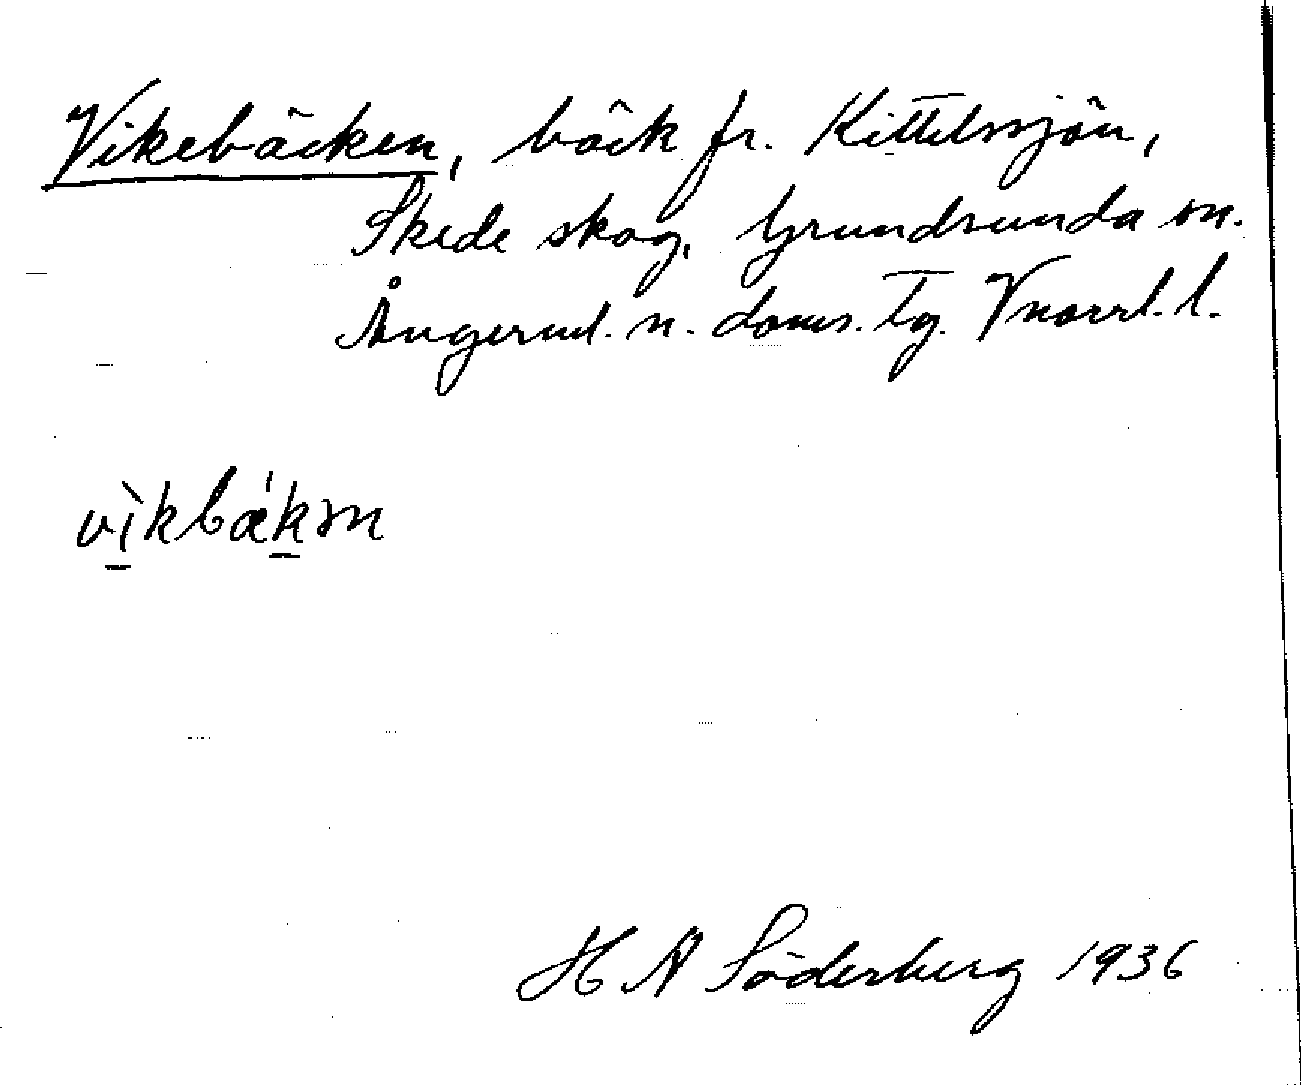 Vikebäcken, bäck fr. Kittelssjön,
Skede skog, Grundsunda sn.
Ångerml. n. doms. tg. Vnorrl. l.
vìkbæ´kən
H A Söderberg 1936